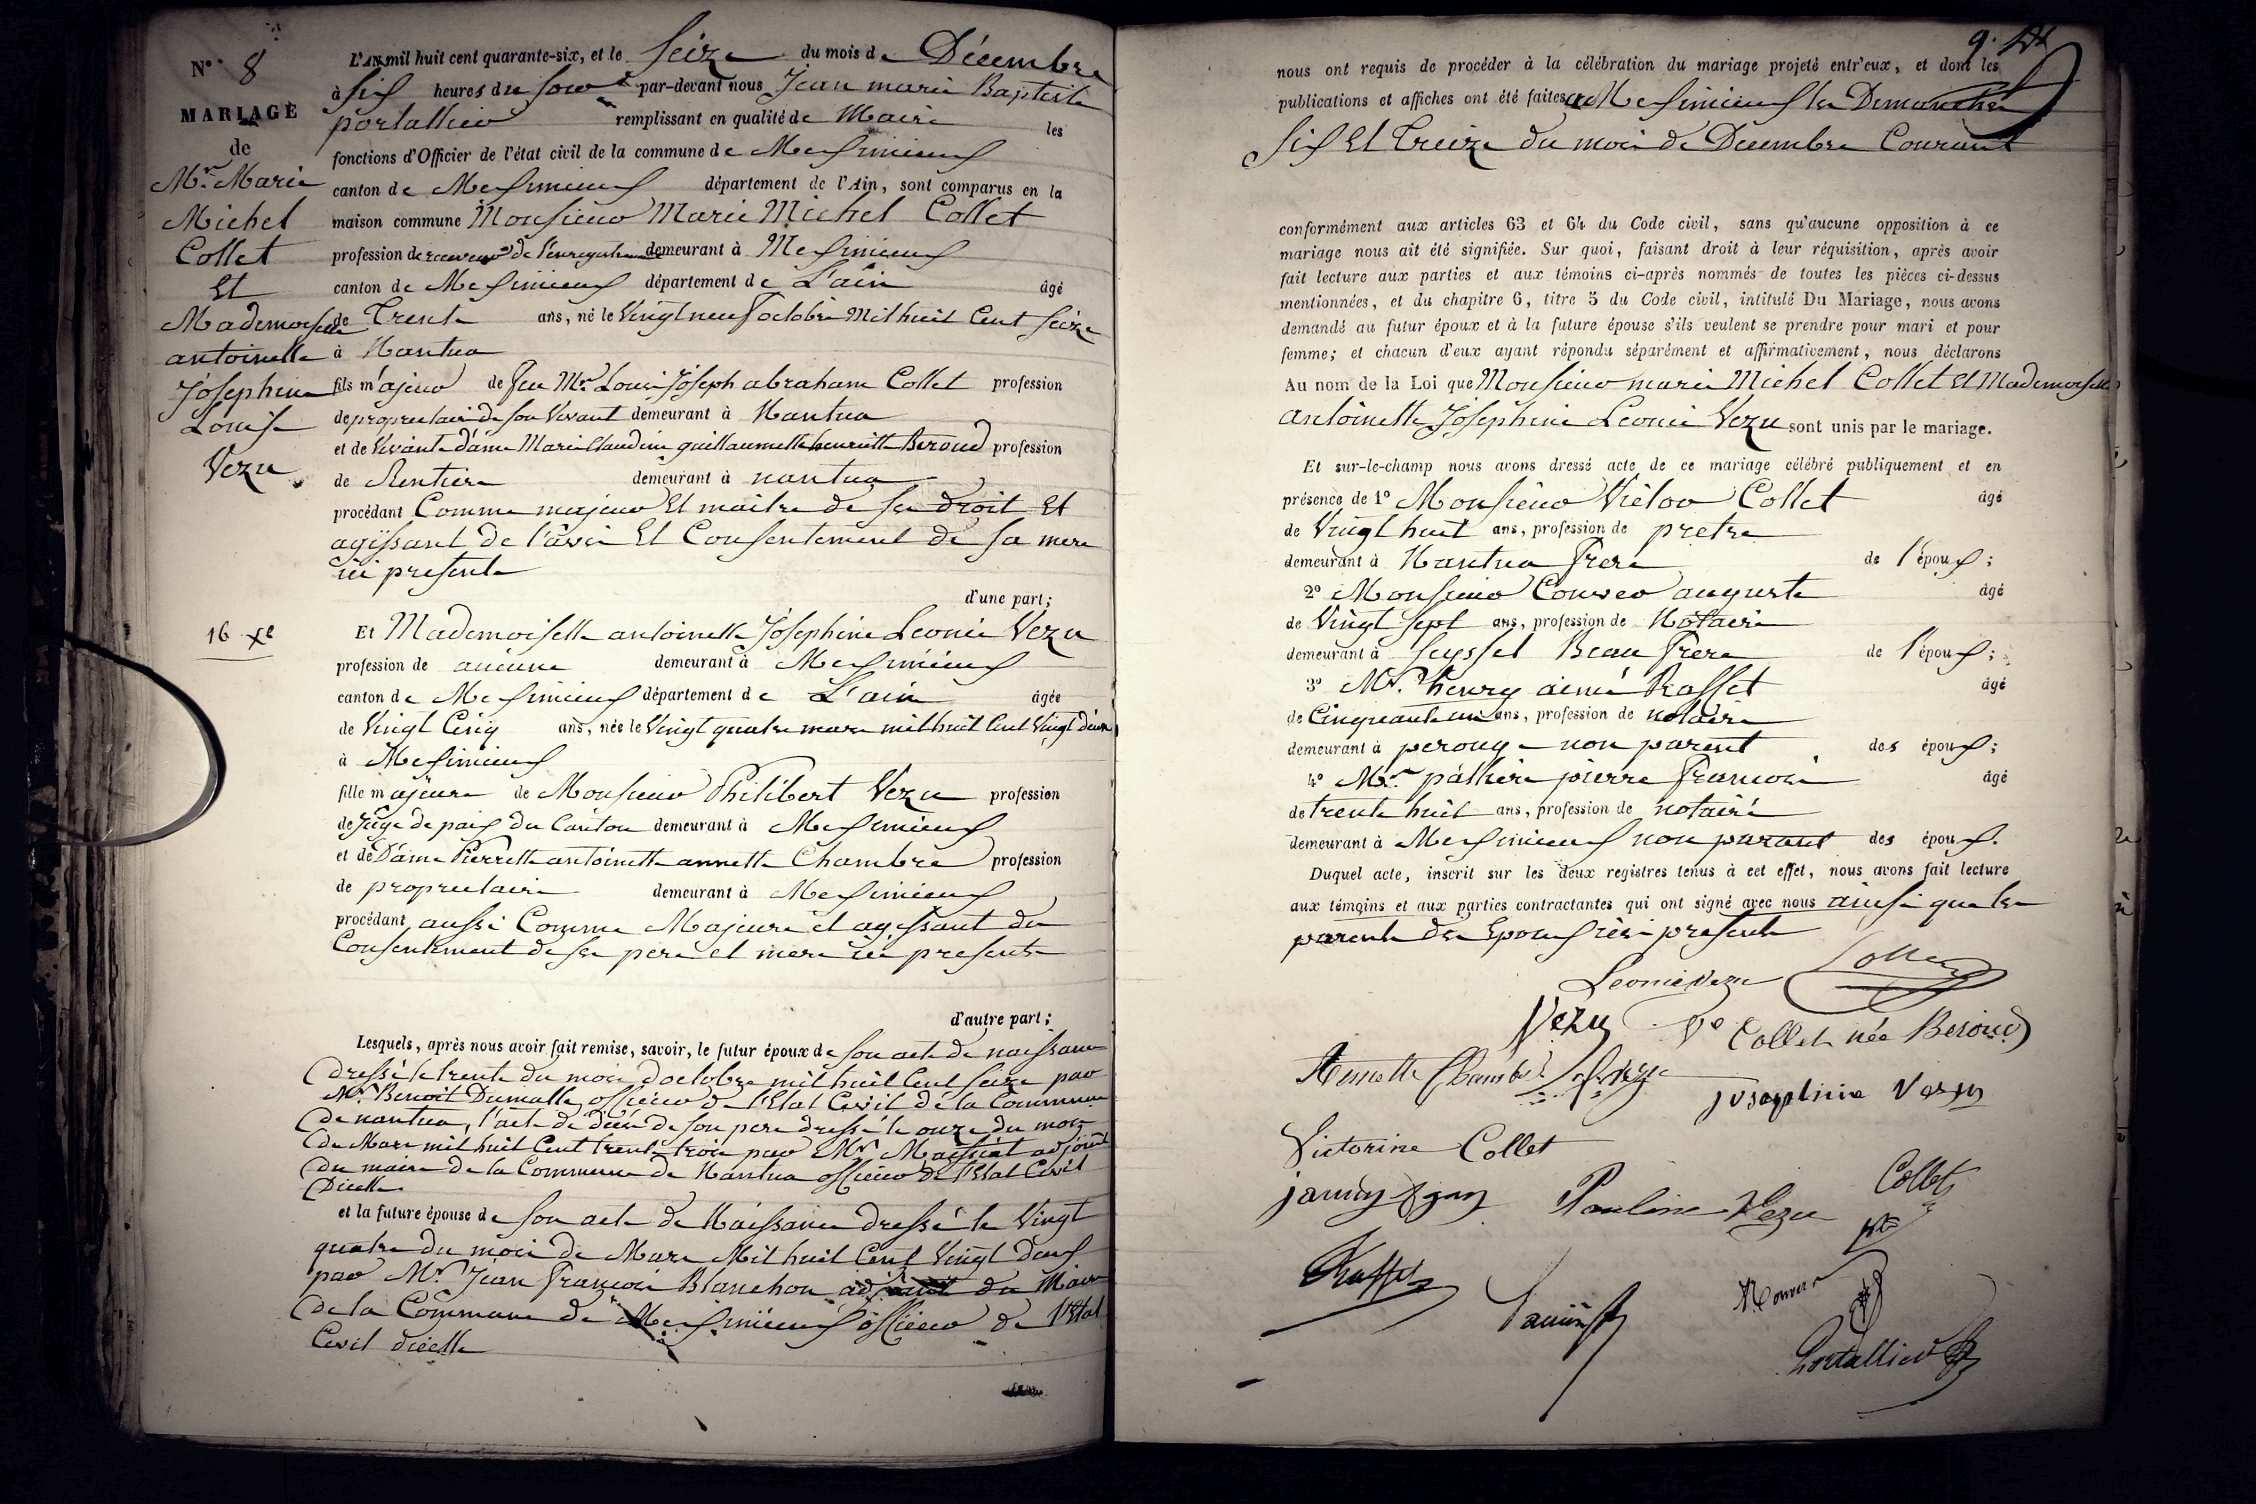 N° 8
MARIAGE
de
Mr. Marie
Michel
Collet
Et
Mademoiselle
antoinette
Joséphine
Louise
Vezu
16 Xe
L'AN mil huit cent quarante-six, et le Seize du mois de Décembre
à Six heures du soir par-devant nous Jean marie Baptiste
portallier remplissant en qualité de Maire les
fonctions d'Officier de l'état civil de la commune de Meximieux
canton de Meximieux département de l'Ain, sont comparus en la
maison commune Monsieur Marie Michel Collet
profession de receveur de l'enregistrement demeurant à Meximieux
canton de Meximieux département de L'ain âgé
de Trente ans, né le Vingt neuf octobre Mil huit Cent Seize
à Nantua
fils majeur de feu Mr. Louis Joseph abraham Collet profession
de proprietaire de son Vivant demeurant à Nantua
et de Vivante dame Marie Claudine guillaumette henriette Beroud profession
de Rentiere demeurant à nantua
procédant Comme majeur Et maitre de ses droit Et
agissant de l'avis Et Consentement de sa mere
ici presente
d'une part;
Et Mademoiselle antoinette Joséphine Leonie Vezu
profession de aucune demeurant à Meximieux
canton de Meximieux département de L'ain âgée
de Vingt Cinq ans, née le Vingt quatre mars mil huit Cent Vingt deux
à Meximieux
fille majeure de Monsieur Philibert Vezu profession
de Juge de paix du Canton demeurant à Meximieux
et de Dame Pierrette antoinette annette Chambre profession
de proprietaire demeurant à Meximieux
procédant aussi Comme Majeure et agissant du
Consentement de ses pere et mere ici presents
d'autre part;
Lesquels, après nous avoir fait remise, savoir, le futur époux de son acte de naissance
dressé le trente du mois d'octobre mil huit Cent Seize par
Mr. Benoit Dumolle officier de l'Etat Civil de la Commune
de nantua, l'acte de décés de son pere dressé le onze du mois
de Mars mil huit Cent trente trois par Mr. adjoint
du maire de la Commune de Nantua officier de l'Etat Civil
Dicelle
et la future épouse de son acte de Naissance dressé le Vingt
quatre du mois de Mars Mil huit Cent Vingt deux
par Mr. Jean François Blanchon adjoint du Maire
de la Commune de Meximieux officier de l'Etat
Civil dicelle
9.
nous ont requis de procéder à la célébration du mariage projeté entr'eux, et dont les
publications et affiches ont été faites à Meximieux les Dimanches
Six Et Treize du mois de Décembre Courant
conformément aux articles 63 et 64 du Code civil, sans qu'aucune opposition à ce
mariage nous ait été signifiée. Sur quoi, faisant droit à leur réquisition, après avoir
fait lecture aux parties et aux témoins ci-après nommés de toutes les pièces ci-dessus
mentionnées, et du chapitre 6, titre 5 du Code civil, intitulé Du Mariage, nous avons
demandé au futur époux et à la future épouse s'ils veulent se prendre pour mari et pour
femme; et chacun d'eux ayant répondu séparément et affirmativement, nous déclarons
Au nom de la Loi que Monsieur marie Michel Collet Et Mademoiselle
antoinette Joséphine Leonie Vezu sont unis par le mariage.
Et sur-le-champ nous avons dressé acte de ce mariage célébré publiquement et en
présence de 1° Monsieur Victor Collet âgé
de Vingt huit ans, profession de pretre
demeurant à Nantua frere de l'époux;
2° Monsieur auguste âgé
de Vingt sept ans, profession de Notaire
demeurant à Seyssel Beau frere de l'époux;
3° Mr. henry aimé Rasset âgé
de Cinquante un ans, profession de notaire
demeurant à perouge non parent des époux;
4° Mr. pierre françois âgé
de trente huit ans, profession de notaire
demeurant à Meximieux non parant des époux.
Duquel acte, inscrit sur les deux registres tenus à cet effet, nous avons fait lecture
aux témoins et aux parties contractantes qui ont signé avec nous ainsi que les
parents des Epoux ici presents
Leonie Vezu Collet
Vezu Ve Collet née Beroud
Annette Chambre Vezu
josephine Vezu
Victorine Collet
Pauline Vezu Collet
ptre
Rasset
Portallier